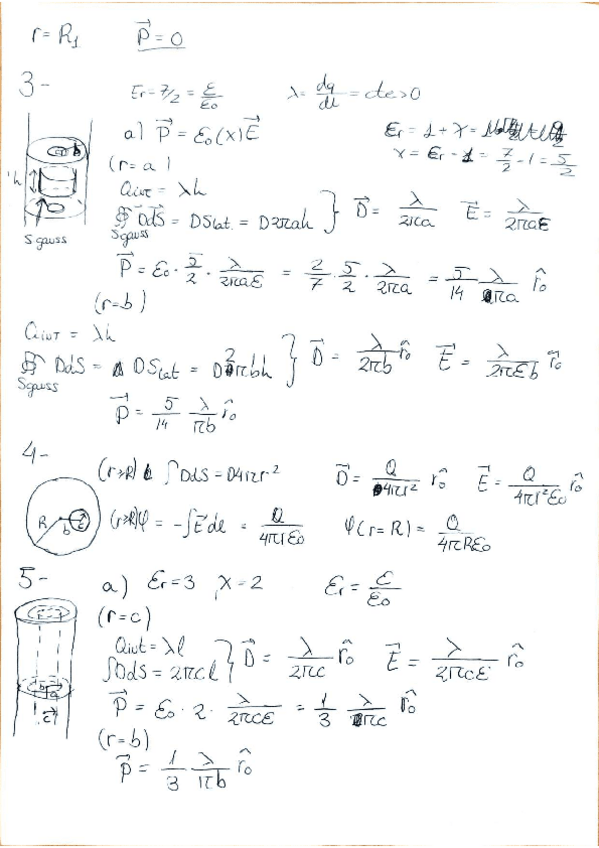 r = R₁ P⃗ = 0
3-
Er = 7/2 = ε/ε₀ λ = dq/dl = de > 0
a) P⃗ = ε₀(x)E⃗ εr = 1 + χ =
χ = εr - 1 = 7/2 - 1 = 5/2
(r = a)
Qint = λh
∯ D⃗dS⃗ = DSlat. = D2πah } D⃗ = λ/2πa E⃗ = λ/2πaε
Sgauss
h
a b
S gauss
P⃗ = ε₀ · 5/2 · λ/2πaε = 2/7 · 5/2 · λ/2πa = 5/14 λ/πa r̂₀
(r = b)
Qint = λh
∯ DdS = DSlat = D2πbh } D⃗ = λ/2πb r̂₀ E⃗ = λ/2πεb r̂₀
Sgauss
P⃗ = 5/14 λ/πb r̂₀
4-
(r≥R) ∫DdS = D4πr² D⃗ = Q/4πr² r̂₀ E⃗ = Q/4πr²ε₀ r̂₀
R b
(r≥R) φ = -∫E⃗dl = Q/4πrε₀ φ(r = R) = Q/4πRε₀
5-
a) εr = 3 , χ = 2 εr = ε/ε₀
(r = c)
Qint = λl
∫DdS = 2πcl } D⃗ = λ/2πc r̂₀ E⃗ = λ/2πcε r̂₀
P⃗ = ε₀ · 2 · λ/2πcε = 1/3 λ/πc r̂₀
(r = b)
P⃗ = 1/3 λ/πb r̂₀